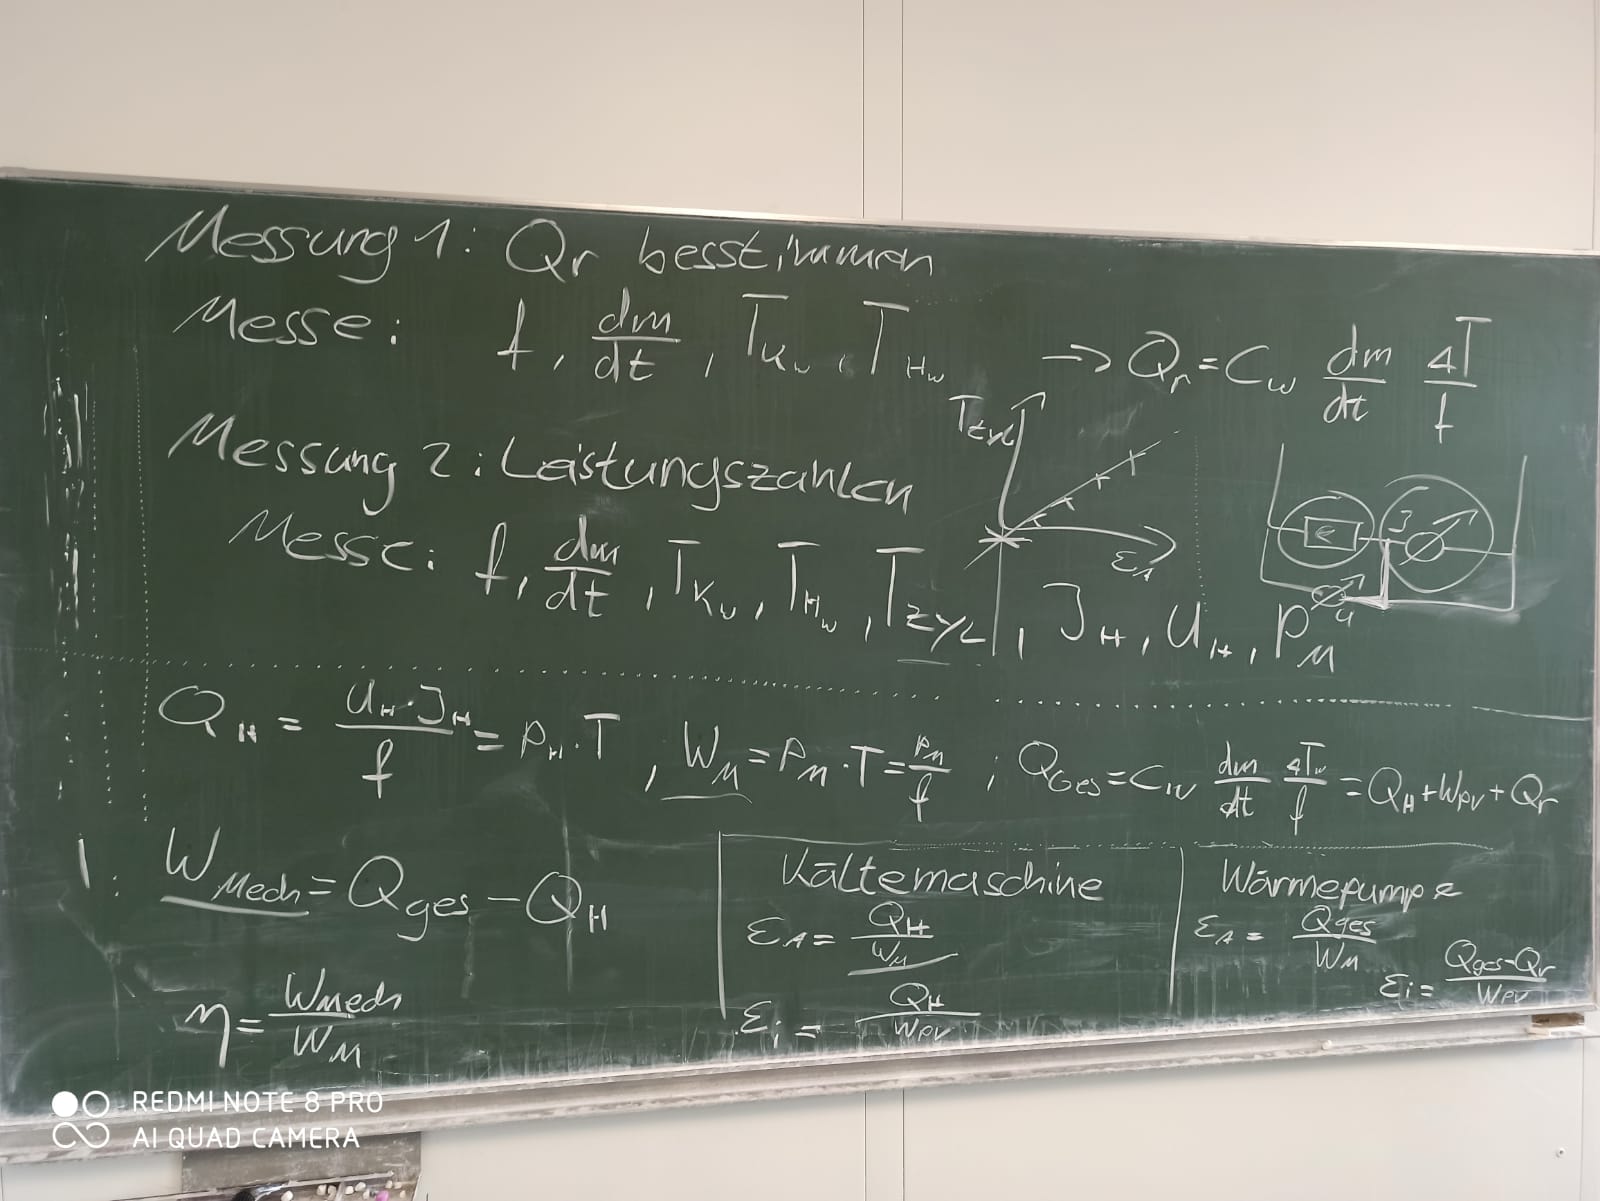 Messung 1: Qr besstimmen
Messe: f, dm/dt, T_Kw, T_Hw → Qr = C_W dm/dt ΔT/f
Messung 2: Leistungszahlen
T_Zyl
ε_A
J
U
Messe: f, dm/dt, T_Kw, T_Hw, T_ZYL, J_H, U_H, P_M
Q_H = U_H · J_H / f = P_H · T, W_M = P_M · T = P_M / f ; Q_Ges = C_W dm/dt ΔT_w/f = Q_H + W_PV + Qr
W_Mech = Q_ges − Q_H
η = W_Mech / W_M
Kältemaschine
ε_A = Q_H / W_M
ε_i = Q_H / W_PV
Wärmepumpe
ε_A = Q_ges / W_M
ε_i = Q_ges − Qr / W_PV
REDMI NOTE 8 PRO
AI QUAD CAMERA